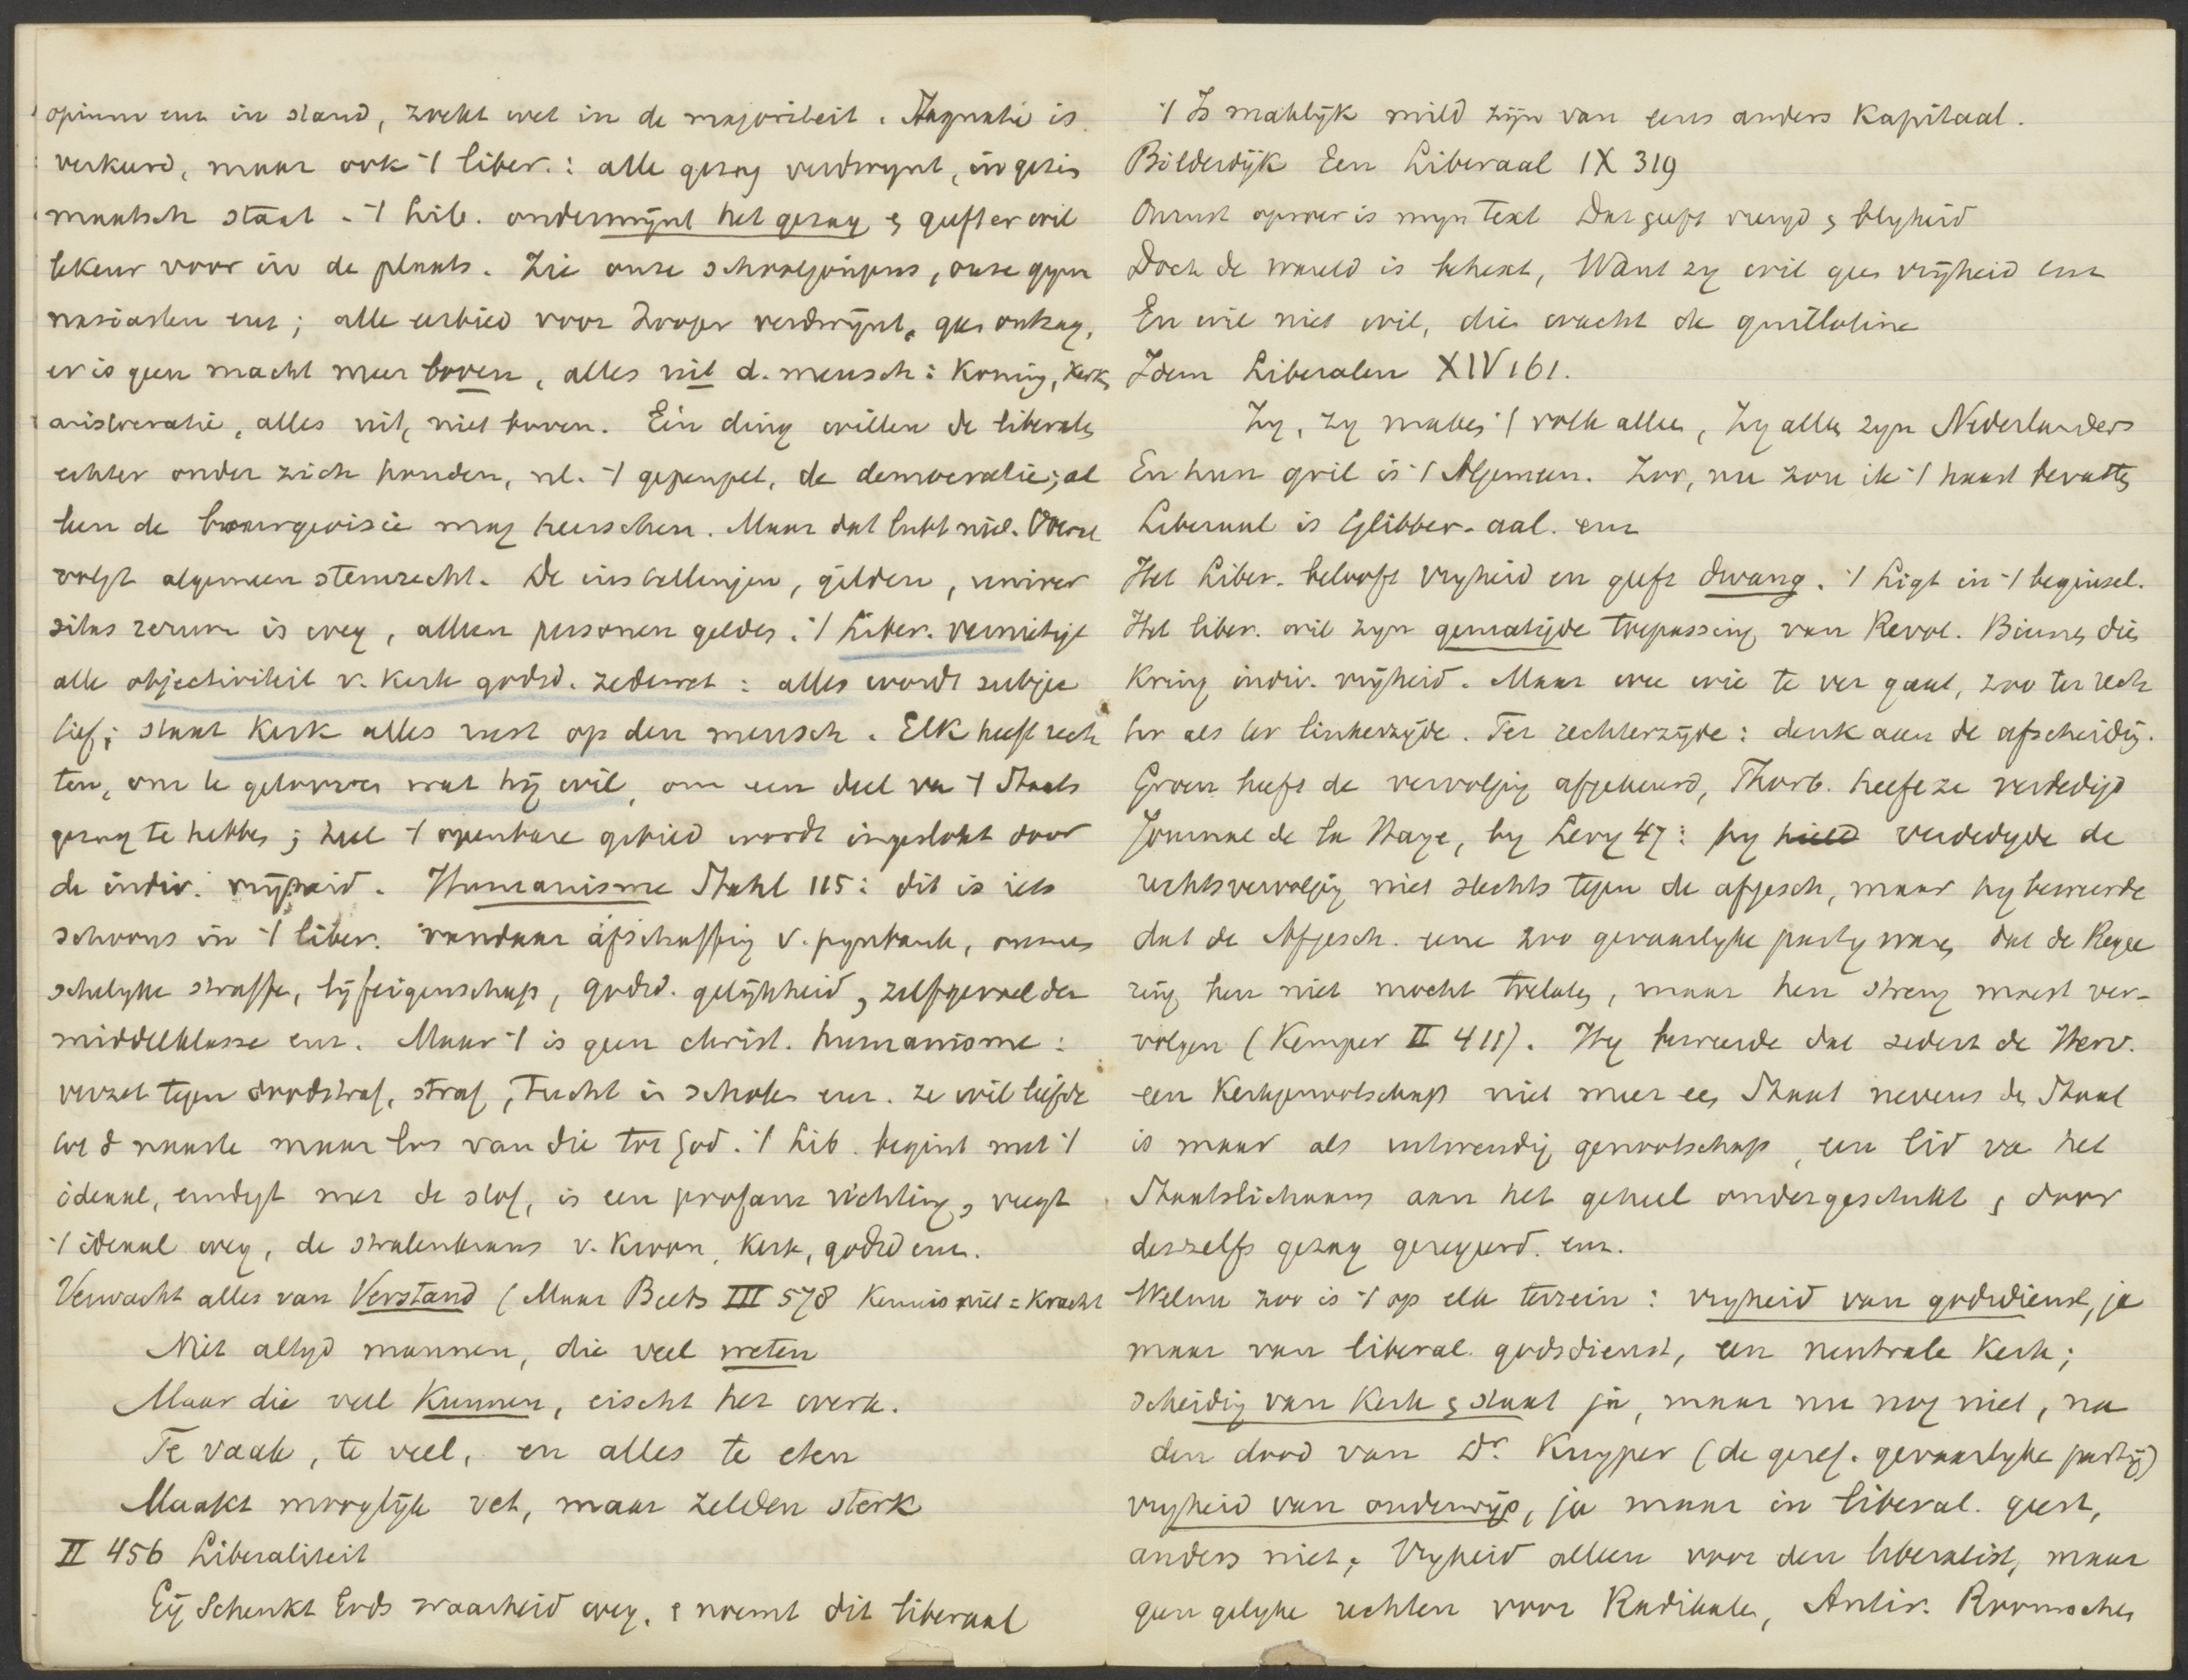 opium enz in stand, zoekt wet in de majoriteit. Stagnatie is
verkeerd, maar ook 't liber.: alle gezag verdwynt, in gezin
maatsch staat. 't Lib. ondermijnt het gezag & geeft er wil
lekeur voor in de plaats. Zie onze schooljongens, onze gym
nasiasten enz; alle eerbied voor hooger verdwijnt, geen ontzag,
er is geen macht meer boven, alles uit d. mensch: Koning, Kerk,
aristocratie, alles uit, niet boven. Eén ding willen de liberalen
echter onder zich houden, nl. 't gepeupel, de democratie; al
leen de bourgeoisie mag heerschen. Maar dat lukt niet. Overal
volgt algemeen stemrecht. De instellingen, gilden, univer
sitas rerum is weg, alleen personen gelden. 't Liber. vernietigt
alle objectiviteit v. Kerk godsd. zedewet: alles wordt subjec
tief; staat Kerk alles rust op den mensch. Elk heeft rech
ten, om te gelooven wat hij wil, om een deel van 't Staats
gezag te hebben; heel 't openbare gebied wordt ingeslokt door
de indiv. vrijheid. Humanisme Stahl 115: dit is iets
schoons in 't liber. vandaar afschaffing v. pynbank, onmen
schelyke straffen, lijfeigenschap, godsd. gelijkheid, zelfgevoel der
middelklasse enz. Maar 't is geen christ. humanisme:
verzet tegen doodstraf, straf, tucht in scholen enz. ze wil liefde
tot d naaste maar los van die tot God. 't Lib. begint met 't
ideaal, eindigt met de stof, is een profane richting, veegt
't ideaal weg, de stralenkrans v. Kroon, Kerk, godsd enz.
Verwacht alles van Verstand (Maar Beets III 578 Kennis niet = Kracht
Niet altyd mannen, die veel weten
Maar die veel Kunnen, eischt het werk.
Te vaak, te veel, en alles te eten
Maakt mooglijk vet, maar zelden sterk
II 456 Liberaliteit
Gij Schenkt Gods waarheid weg, & noemt dit liberaal
't Is maklijk mild zijn van eens anders Kapitaal.
Bilderdijk Een Liberaal IX 319
Onrust oproer is myn Text Dat geeft vreugd & blyheid
Doch de wereld is behext, Want zy wil geen vrijheid enz
En wie niet wil, die wacht de guillotine
Idem Liberalen XIV 161.
Zy, zy maken 't volk alleen, Zy allen zyn Nederlanders
En hun gril is 't Algemeen. Zoo, nu zou ik 't haast bevatten
Liberaal is Glibber-aal. enz
Het Liber. belooft vryheid en geeft dwang. 't Ligt in 't beginsel.
Het liber. wil zyn gematigde toepassing van Revol. Binnen dien
Kring indiv. vrijheid. Maar wee wie te ver gaat, zoo ter rech
ter als ter linkerzijde. Ter rechterzijde: denk aan de afscheiding.
Groen heeft de vervolging afgekeurd, Thorb. heeft ze verdedigd
Journal de la Haye, by Levy 47: hy hield verdedigde de
rechtsvervolging niet slechts tegen de afgesch, maar hy beweerde
dat de Afgesch. eene zoo gevaarlyke party waren, dat de Regee
ring hen niet mocht toelaten, maar hen streng moest ver-
volgen (Kemper II 411). Hy beweerde dat sedert de Herv.
een Kerkgenootschap niet meer een Staat nevens den Staat
is maar als uitwendig genootschap, een lid van het
Staatslichaam aan het geheel ondergeschikt & door
deszelfs gezag geregeerd. enz.
Welnu zoo is 't op elk terrein: vryheid van godsdienst, ja
maar van liberal. godsdienst, een neutrale Kerk;
scheiding van Kerk & staat ja, maar nu nog niet, na
den dood van Dr. Kuyper (de geref. gevaarlyke partij)
vryheid van onderwijs, ja maar in liberal. geest,
anders niet; Vryheid alleen voor den liberalist, maar
geen gelyke rechten voor Radikalen, Antir. Roomschen